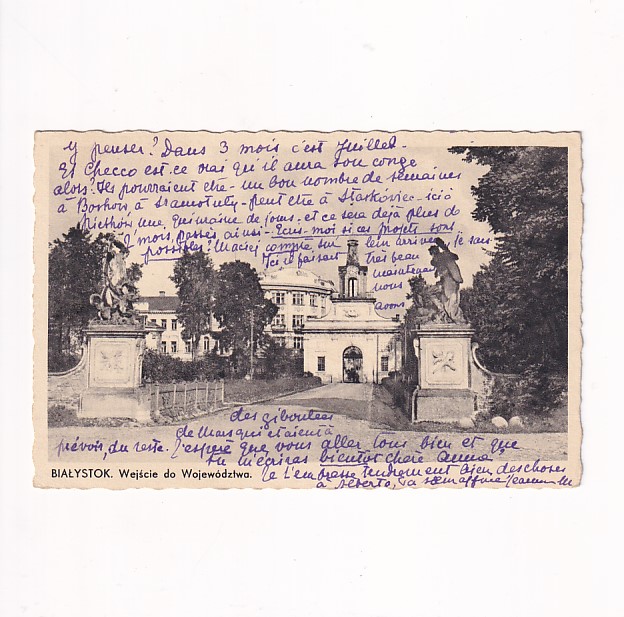 y penser? Dans 3 mois c'est Juillet -
Et Checco est-ce vrai qu'il aura son congé
alors? Ils pourraient être - un bon nombre de semaines
à à Szamotuły - peut être à ici à
une quinzaine de jours - et ce sera déjà plus de
2 mois passés ainsi - moi si ces projets sont
possibles? Maciej compte sur leur arrivée, je sais
Ici il faisait très beau
maintenant
nous
avons
des giboulées
de Mars qui étaient à
prévoir, du reste. J'espère que vous aller tous bien et que
tu m'écriras bientôt chère Anna
Je t'embrasse tendrement bien des choses
à Alberto, ta
BIAŁYSTOK. Wejście do Województwa.